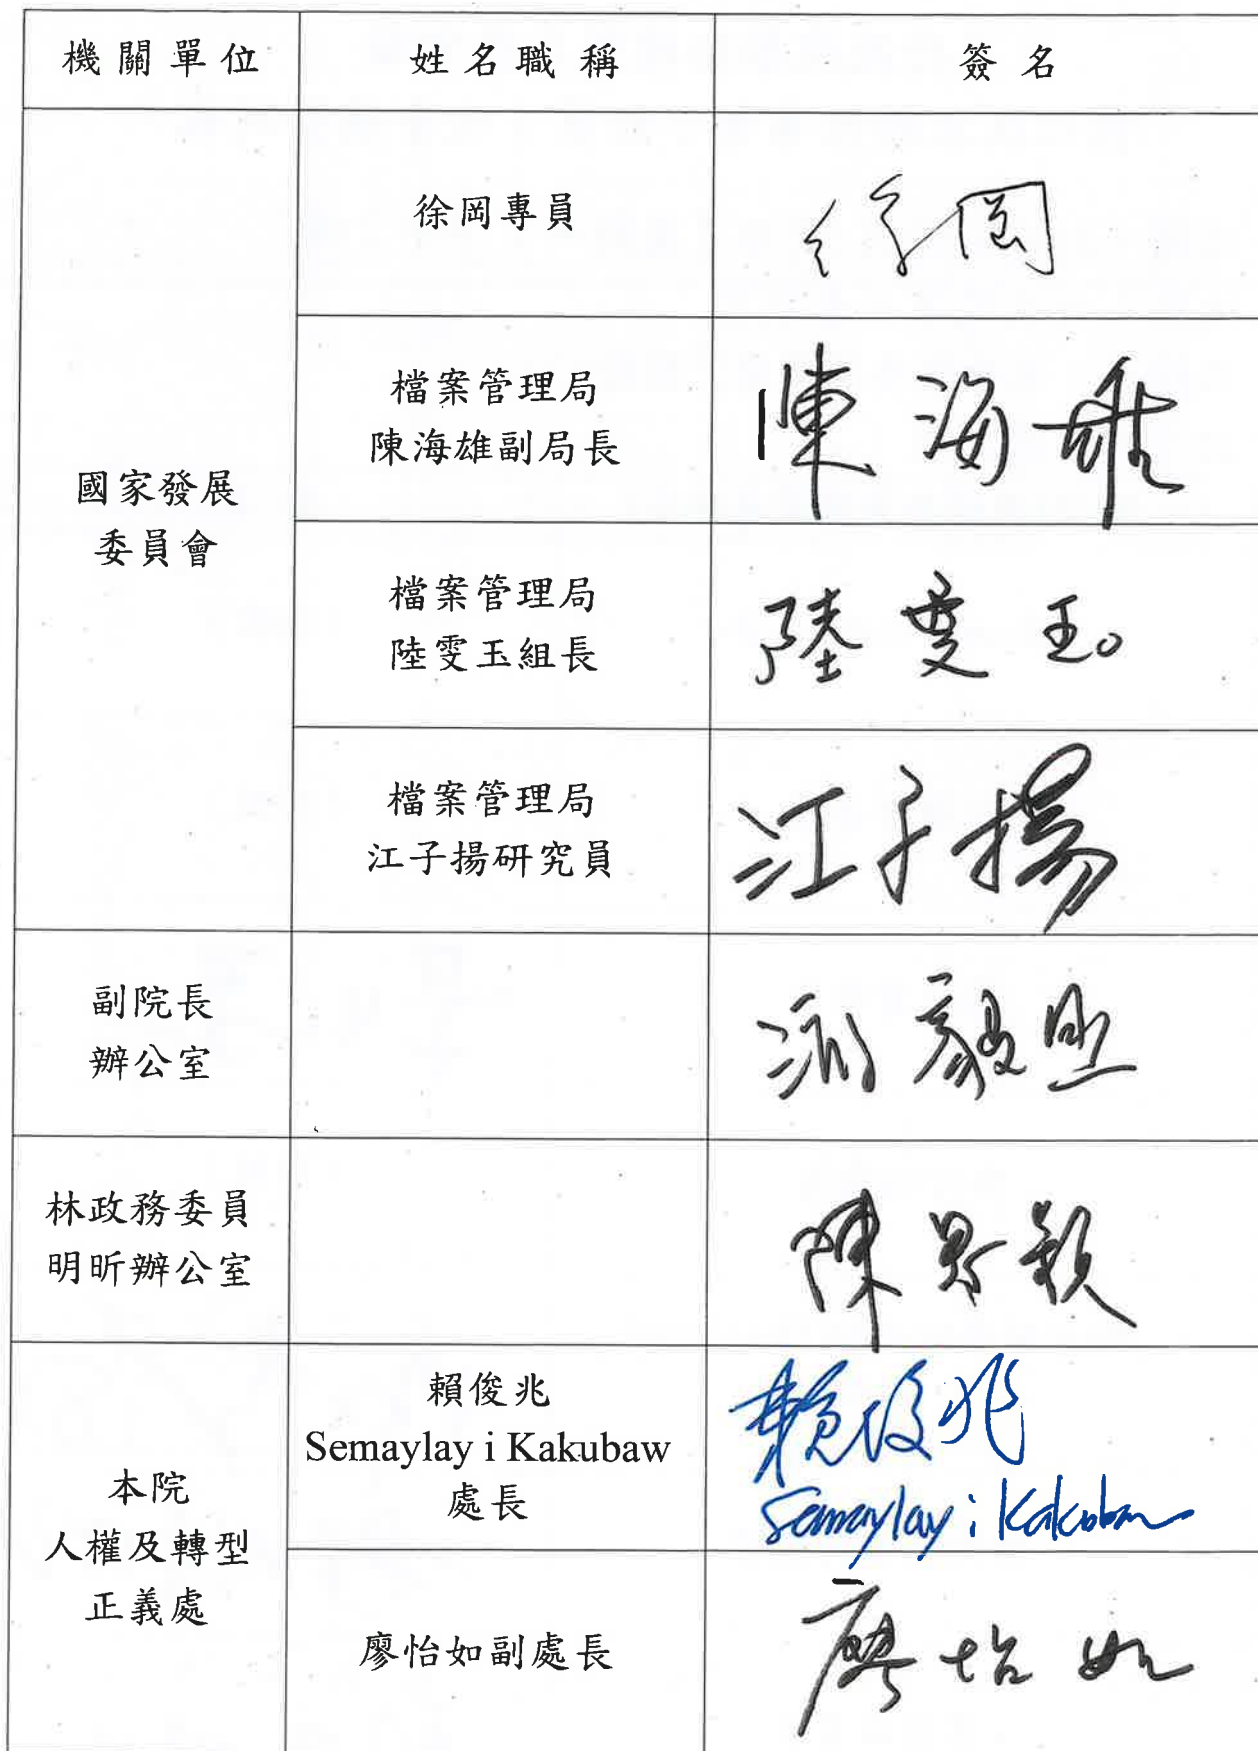 機關單位 姓名職稱 簽名
國家發展
委員會
徐岡專員 徐岡
檔案管理局
陳海雄副局長 陳海雄
檔案管理局
陸雯玉組長 陸雯玉
檔案管理局
江子揚研究員 江子揚
副院長
辦公室
毅
林政務委員
明昕辦公室
陳
本院
人權及轉型
正義處
賴俊兆
Semaylay i Kakubaw
處長
賴俊兆
Semaylay i Kakubaw
廖怡如副處長 廖怡如